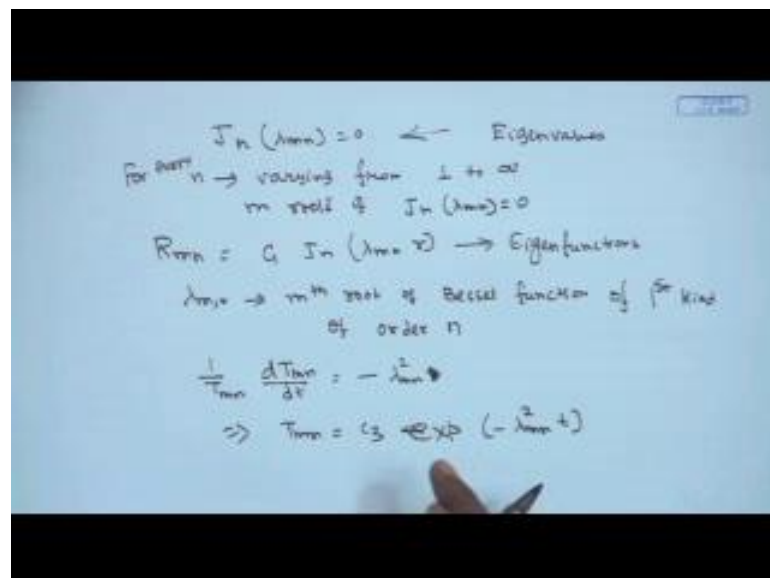 Jn (λmn) = 0 ← Eigenvalues
For every n → varying from 1 to ∞
m roots of Jn (λmn) = 0
Rmn = C1 Jn (λmn r) → Eigenfunctions
λm,n → mth root of Bessel function of 1st kind
of order n
1/Tmn dTmn/dt = - λ²mn
⇒ Tmn = C3 exp (- λ²mn t)